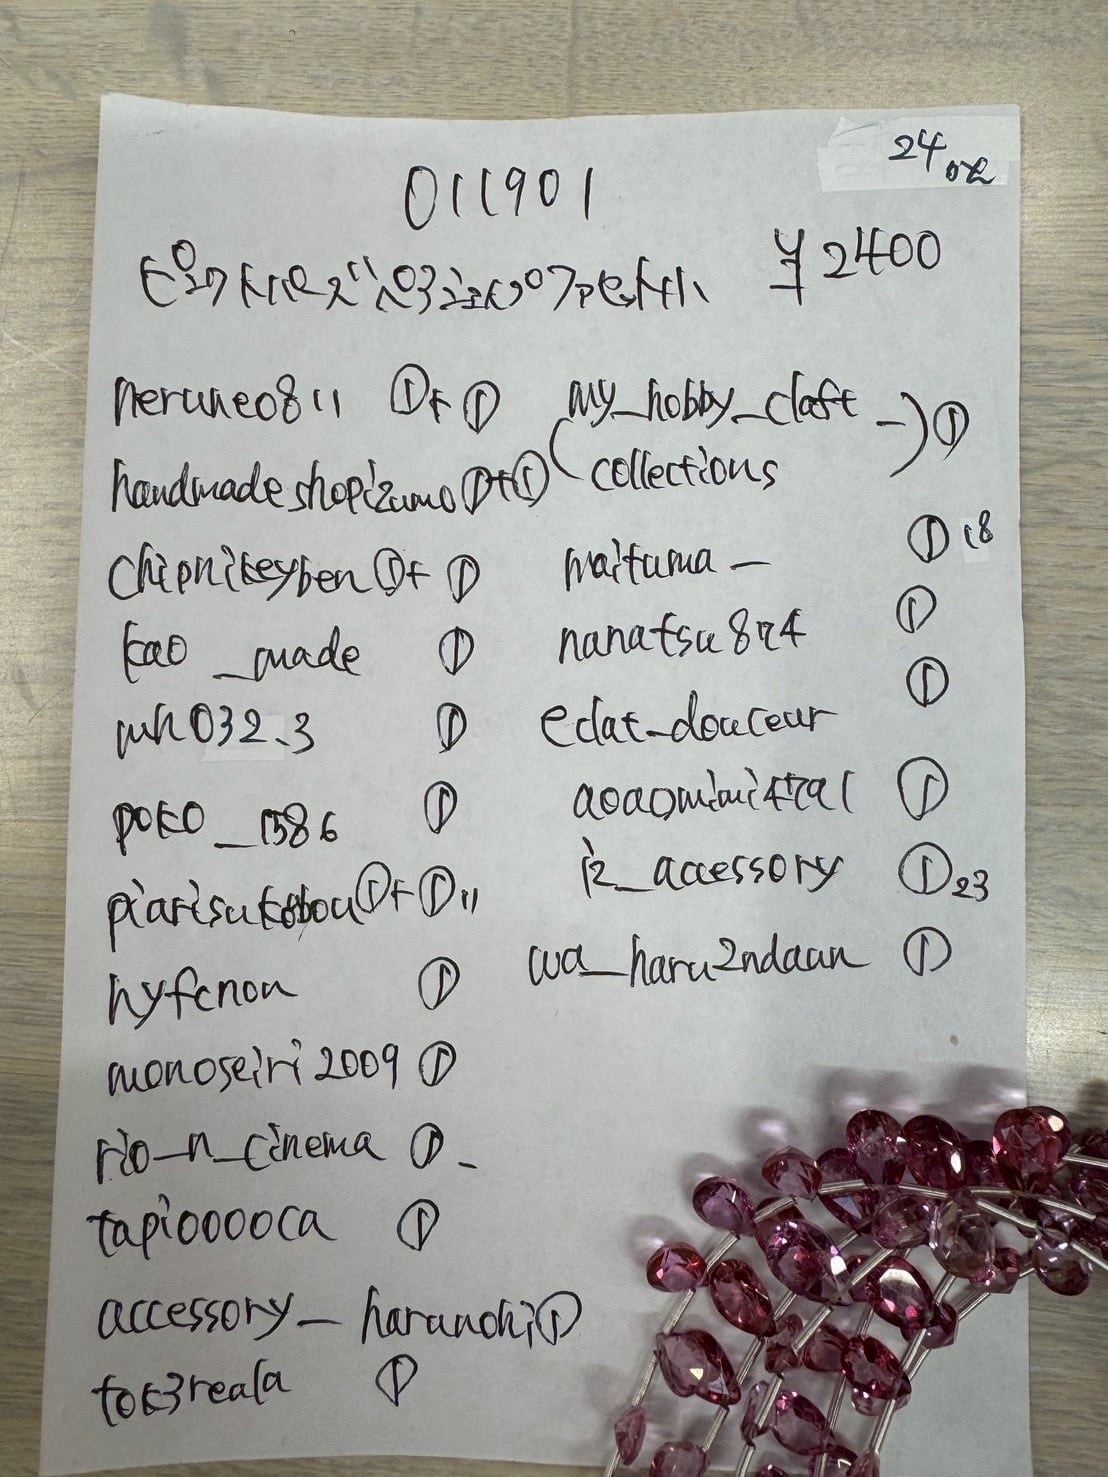 24
011901
¥2400
neruneo811 ①+①
handmadeshopizumo①+①
chipnikeyben①+①
kao_made ①
mh032.3 ①
poko_1586 ①
piarisukobou①+①11
hyfcnon ①
monoseiri2009 ①
rio_n_cinema ①-
tapiooooca ①
accessory_haranohi①
tok3reala ①
(my_hobby_claft_)①
collections
maituma_ ①18
nanatsu874 ①
eclat_douceur ①
aoaomimi4791 ①
iz_accessory ①23
wa_haru2ndaan ①